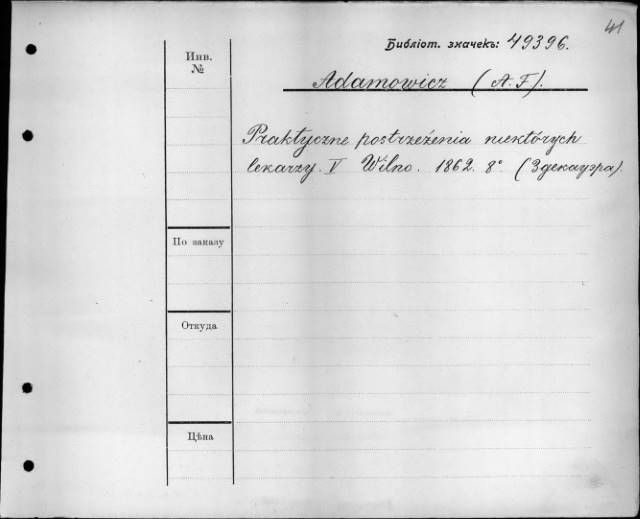 41
Библіот. значекъ: 49396.
Инв.
№
Adamowicz (A. F).
Praktyczne postrzeżenia niektórych
lekarzy. V Wilno. 1862. 8° (3 декауэра).
По заказу
Откуда
Цѣна